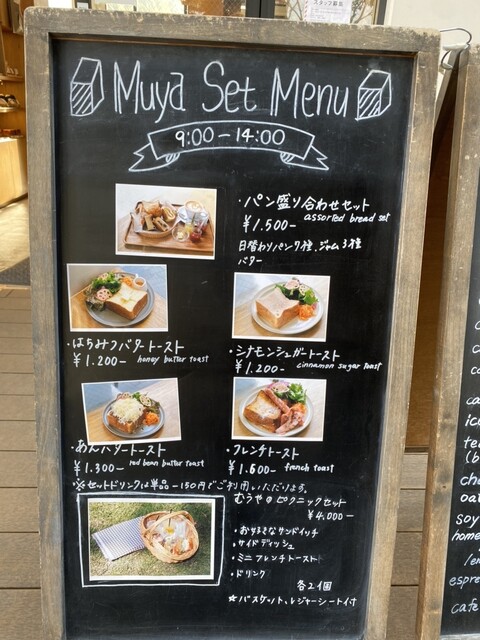 スタッフ募集
Muya Set Menu
9:00-14:00
・パン盛り合わせセット
assorted bread set
¥1.500-
日替わりパン7種、ジャム3種
バター
・はちみつバタートースト
¥1.200- honey butter toast
・シナモンシュガートースト
¥1.200- cinnamon sugar toast
・あんバタートースト
¥1.300- red bean butter toast
・フレンチトースト
¥1.600- franch toast
※セットドリンクは単品-150円でご利用いただけます。
むうやのピクニックセット
¥4.000-
・お好きなサンドイッチ
・サイドディッシュ
・ミニフレンチトースト
・ドリンク
各2個
★バスケット、レジャーシート付
oat
soy
home
espre
cafe